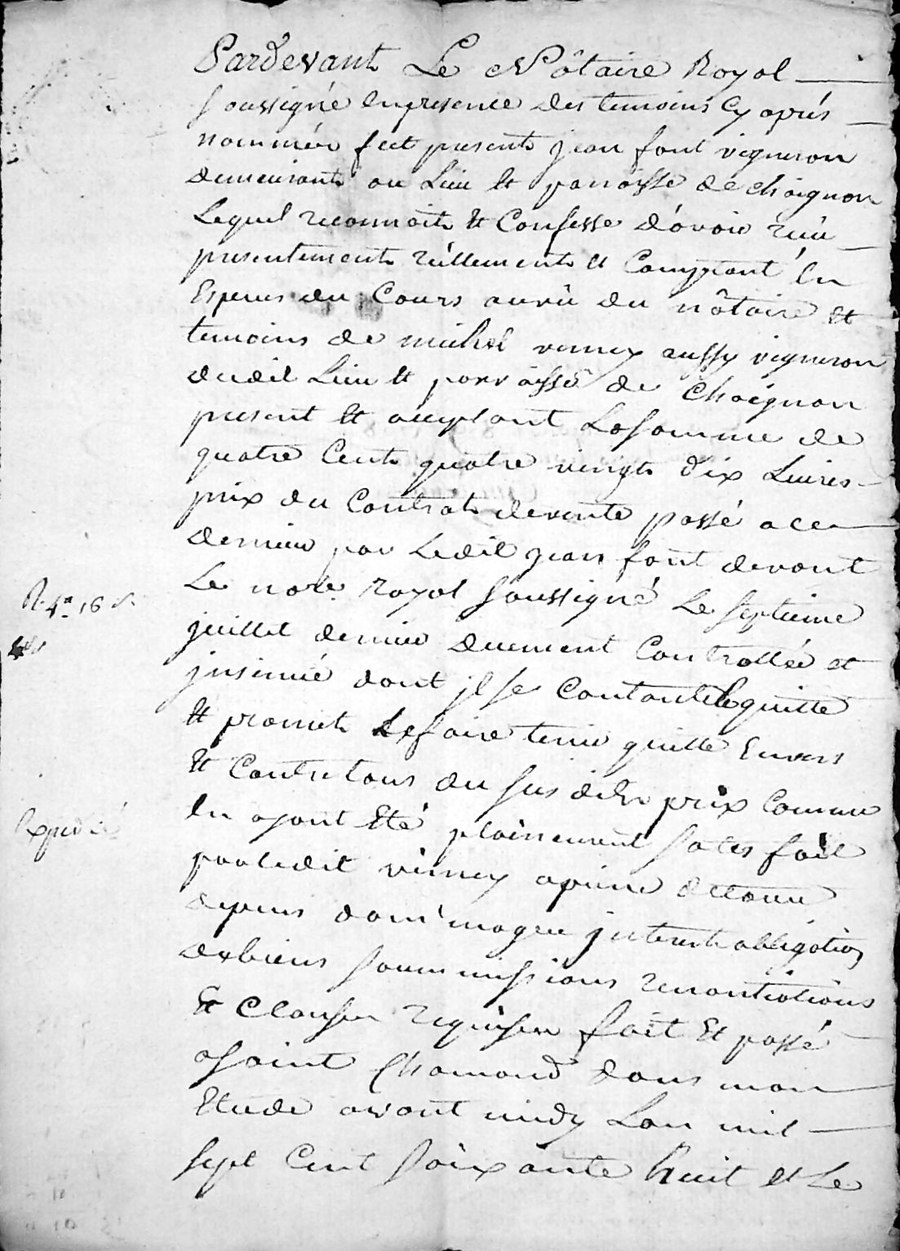 Pardevant Le Nôtaire Royal
soussigné En presence des temoins Cy aprés
nommés fut present jean font vigneron
demeurant au Lieu et paroisse de chaignon
Lequel reconnoit et Confesse d'avoir reçu
presentement réellement et Comptant En
Especes du Cours au vû du nôtaire et
temoins de michel viney aussy vigneron
dudit Lieu et parroisse de Chaignon
present et acceptant La somme de
quatre Cent quatre vingt dix Livres
prix du Contrat de vente passé a ce
dernier par Ledit jean font devant
Le nore Royal soussigné Le septieme
juillet dernier duement Controllée et
jnsinuée dont jl se Contante Le quitte
et promet Le faire tenir quitte Envers
et Contre tous du susdit prix Comme
En ayant Eté plainement satisfait
par Ledit viney a peine de tous
depens dommages jnterets obligation
de biens soummissions renontiations
Et Clauses requises fait Et passé
a saint Chamond dans mon
Etude avant midy Lan mil
sept Cent soixante huit et Le
R. 4.a 16 s.
Expedié